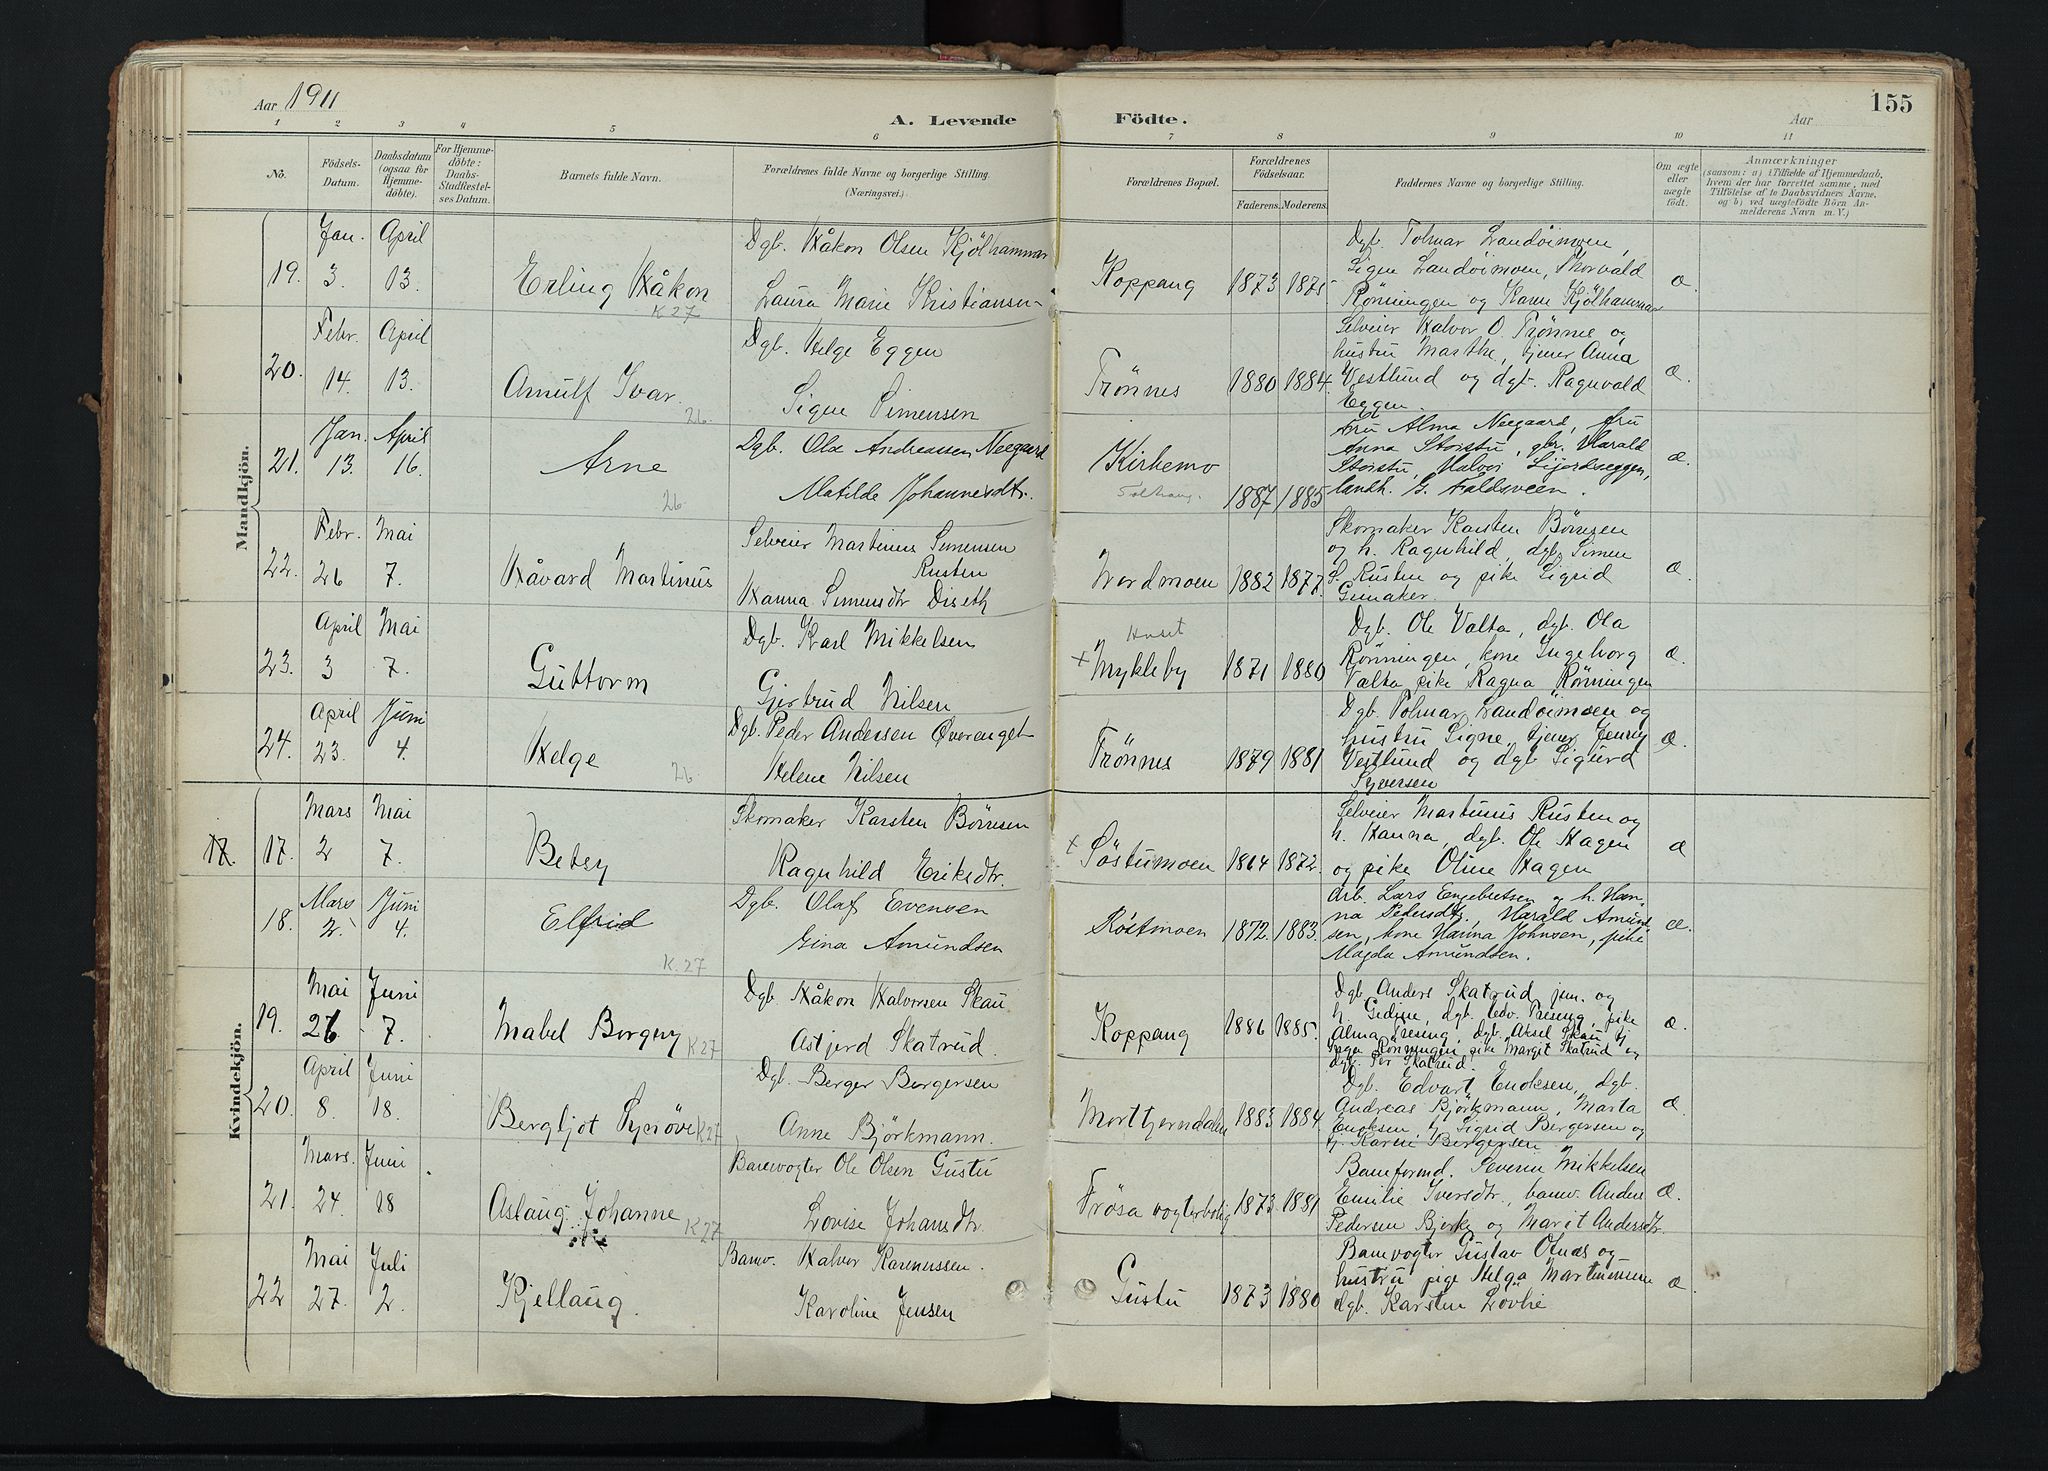 Aar 1911
A. Levende Födte.
Aar
155
1 2 3 4 5 6 7 8 9 10 11
No.
Födsels-Datum.
Daabsdatum (ogsaa for Hjemme-döbte).
For Hjemme-döbte: Daabs-Stadfæstel-ses Datum.
Barnets fulde Navn.
Forældrenes fulde Navne og borgerlige Stilling. (Næringsvei.)
Forældrenes Bopæl.
Forældrenes Födselsaar.
Faderens. Moderens.
Faddernes Navne og borgerlige Stilling.
Om ægte eller uægte födt.
Anmærkninger
(saasom: a) i Tilfælde af Hjemmedaab, hvem der har forrettet samme, med Tilföielse af to Daabsvidners Navne, og b) ved uægtefödte Börn An-melderens Navn m. V.)
Mandkjön.
19. Jan. 3. April 13. Erling Håkon K 27
Dgb. Håkon Olsen Kjölhammar
Laura Marie Kristiansen
Koppang 1873 1875
Dgb. Tolmar Landöimoen,
Signe Landöimoen, Thorvald
Rönningen og Karen Kjölhammar
æ.
20. Febr. 14. April 13. Arnulf Ivar. 26.
Dgb. Helge Eggen
Signe Simensen
Trönnes 1880 1884.
Selveier Halvor O. Trönnes og
hustru Marthe, tjener Anna
Vestlund og dgb. Ragnvald
Eggen.
æ.
21. Jan. 13. April 16. Arne 26
Dgb. Ola Andreassen Neegaard
Matilde Johannesdtr.
Kirkemo 1887 1885
Fru Alma Neegaard, fru
Anna Storstu, gbr. Harald
Storstu, Halvor
landh. G. Faldsveen.
æ.
22. Febr. 26 Mai 7. Håvard Martinus
Selveier Martinus Simensen
Rusten
Hanna Simensdtr Diseth
Nordmoen 1882 1877.
Skomaker Karsten Börresen
og h. Ragnhild, dgb. Simen
S. Rusten og pike Sigrid
æ.
23. April 3 Mai 7. Guttorm
Dgb. Karl Mikkelsen
Gjertrud Nilsen
Huset
+ Mykleby 1871 1880
Dgb. Ole Valta, dgb. Ola
Rönningen, kone Ingeborg
Valta pike Ragna Rönningen
æ.
24. April 23. Juni 4. Helge 26
Dgb. Peder Andersen Överenget
Helene Nilsen
Trönnes 1879 1881
Dgb. Tolmar Landöimoen og
hustru Signe, tjener Jenny
Vestlund og dgb Sigurd
Syversen
æ.
Kvindekjön.
17. 17. Mars 2 Mai 7. Betsy
Skomaker Karsten Börresen
Ragnhild Eriksdtr.
+ Söstumoen 1864 1872.
Selveier Martinus Rusten og
h. Hanna, dgb. Ole Hagen
og pike Oline Hagen
æ
18. Mars 2. Juni 4. Elfrid K. 27
Dgb. Olaf Evensen
Gina Amundsen
Röstmoen 1872. 1883.
Arb. Lars Engebretsen og h. Han-
na Pedersdtr., Harald Amund-
sen, kone Marina Johnsen, pike
Magda Amundsen.
æ.
19. Mai 26 Juni 7. Mabel Borgny K 27
Dgb. Håkon Halvorsen Skau
Astjerd Skatrud.
Koppang 1886 1885.
Dgb. Anders Skatrud jun. og
h. Gudine, dgb. Edv. Tresing, pike
Alma Tresing, dgb. Aksel Skau tj
Inga Rönningen pike Margit Skatrud og
dgb. Per Skatrud.
æ.
20. April 8. Juni 18. Bergljot Synöve K 27
Dgb. Berger Borgersen
Anne Björkmann.
Morttjerndalen 1883 1884
Dgb. Edvart Enoksen, dgb.
Andreas Björkmann, Marta
Enoksen tj Sigrid Bergersen og
tj. Karen Bergersen
æ.
21. Mars. 24. Juni 18 Aslaug Johanne K 27
Banevogter Ole Olsen Gustu
Lovise Johansdtr
Frösa vogterbolig 1873 1881
Baneformd. Severin Mikkelsen
Emilie Iversdtr, banv. Anders
Pedersen Bjerke og Marit Andersdtr.
æ.
22 Mai 27. Juli 2. Kjellaug.
Banv. Halvor Rasmussen.
Karoline Jensen
Gustu 1873 1880
Banevogter Gustav Olnæs og
hustru pige Helga Martinusen
dgb. Karsten Lövlie
æ.